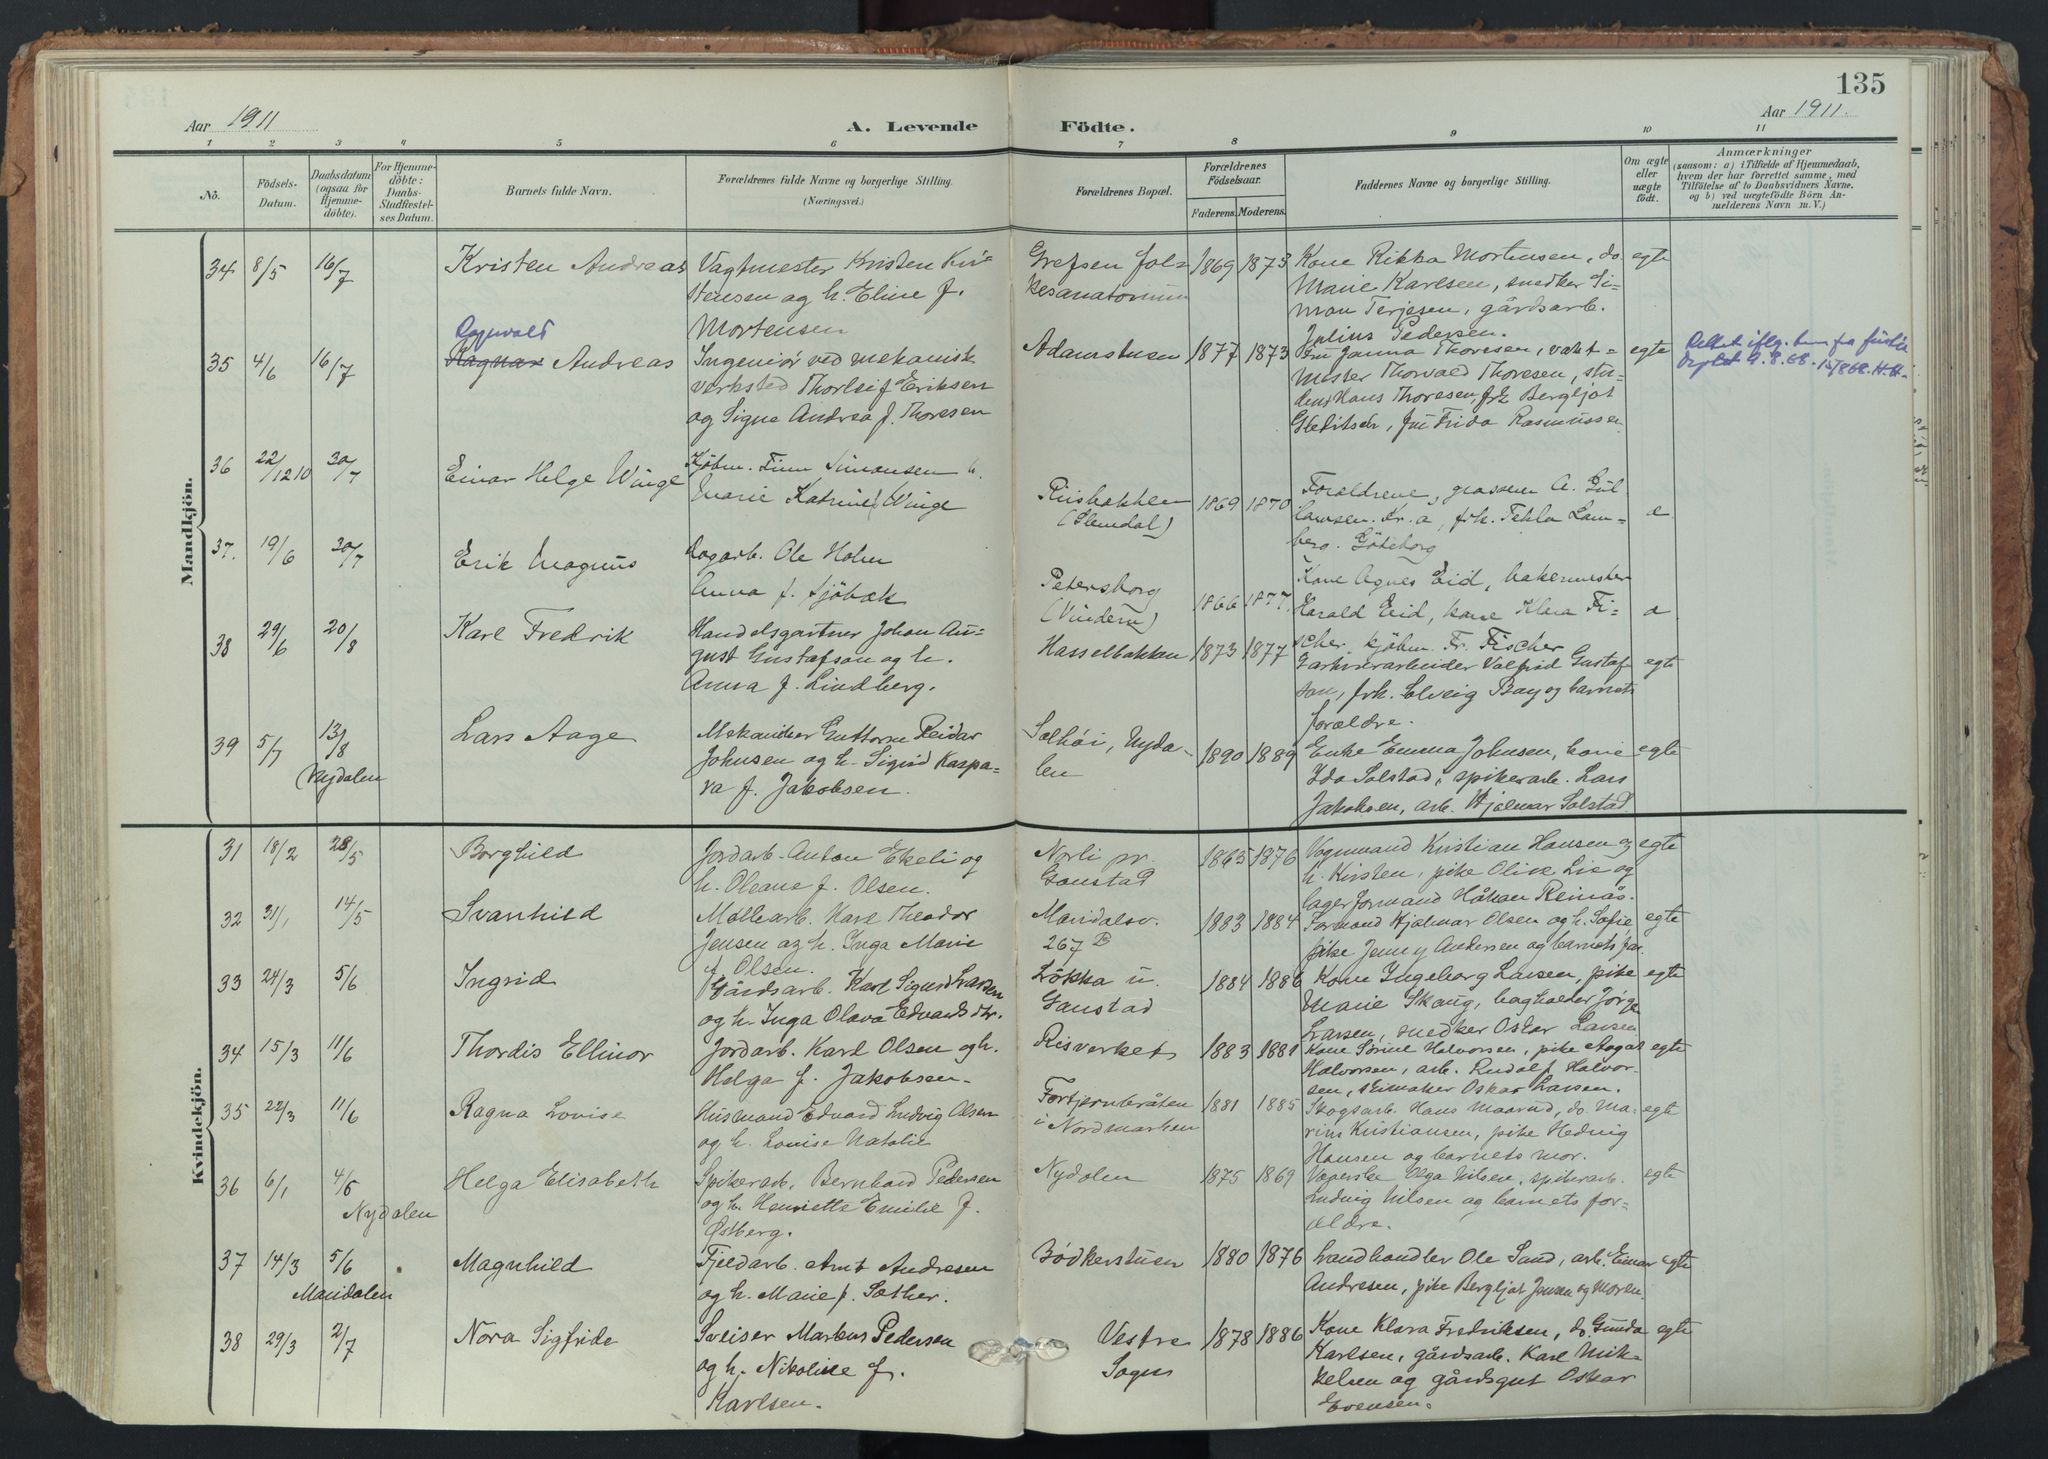 135
Aar 1911
A. Levende Födte.
Aar 1911.
1 2 3 4 5 6 7 8 9 10 11
No.
Födsels-Datum.
Daabsdatum (ogsaa för Hjemmedöbte).
For Hjemmedöbte: Daabs-Stadfæstelses Datum.
Barnets fulde Navn.
Forældrenes fulde Navne og borgerlige Stilling.
(Næringsvei.)
Forældrenes Bopæl.
Forældrenes Födselsaar.
Faderens. Moderens.
Faddernes Navne og borgerlige Stilling.
Om ægte eller uægte født.
Anmærkninger
(saasom: a) i Tilfælde af Hjemmedaab,
hvem der har forrettet samme, med
Tilföielse af to Daabsvidners Navne.
og b) ved uægtefödte Börn Anmelderens Navn m. V.)
Mandkjön.
34 8/5 16/7 Kristen Andreas
Vagtmester Kristen Kristensen og h. Eline f.
Mortensen
Grefsen Folkesanatorium
1869 1873
Kone Rikka Mortensen, do
Marie Karlsen, snedker Simon Terjesen, gårdsarb.
Julius Pedersen.
egte
35 4/6 16/7 Ragnvald
Ragnar Andreas
Ingeniör ved mekanisk
verksted Thorleif Eriksen
og Signe Andrea f. Thoresen
Adamstuen 1877 1873
Fru Janna Thoresen, vaktmester Thorvald Thoresen, student Hans Thoresen, frk Bergljot
Gleditsch, fru Frida Rasmussen
egte
Rettet iflg. 9.8.68. 15/868. H.H.
36 22/12 10 30/7 Einar Helge Winge
Kjöbm. Finn Simonsen h.
Marie Katrine f. Winge
Risbakken
(Slemdal)
1869 1870
Forældrene, grosserer A. Kr.a, frk. Tekla Göteborg
e.
37. 19/6 30/7 Erik Magnus
Dagarb. Ole Holm
Anna f. Sjöbæk
Petersborg
(Vinderen)
1866 1877.
Kone Agnes Eid, bakermester
Harald Eid, kone Klara Fischer, kjöbm. Fr. Fischer
e
38 29/6 20/8 Karl Fredrik
Handelsgartner Johan August Gustafson og h.
Anna f. Lindberg.
Hasselbakken 1873 1877
Valfrid Gustafson, frk. Solveig Bay og barnets
forældre.
egte
39 5/7 13/8 (Nydalen Lars Aage
Mekaniker Guttorm Reidar
Johnsen og h. Sigrid Kaspara f. Jakobsen.
Solhöi, Nydalen
1890 1889
Enke Emma Johnsen, kone
Ida Solstad, spikerarb. Lars
Jakobsen, arb. Hjalmar Solstad
egte
Kvindekjön.
31 18/2 28/5 Borghild
Jordarb. Anton Ekeli og
h. Oleane f. Olsen.
Norli pr.
Gaustad
1865 1876
Vognmand Kristian Hansen og
h. Kirsten, pike Olive Lie og
lagerformand Håkon Reinås.
egte
32 31/1 14/5 Svanhild
Möllearb. Karl Theodor
Jensen og h. Inga Marie
f. Olsen.
Maridalsv.
267 B
1883 1884
Formand Hjalmar Olsen og h. Sofie,
pike Jenny Andersen og barnets far.
egte
33 24/3 5/6 Ingrid
Gårdsarb. Karl Sigurd Larsen
og h. Inga Olava Edvardsdtr.
Lökka u.
Gaustad
1884 1886
Kone Ingeborg Larsen, pike
Marie Skaug, bagholder Jörgen
Larsen, snedker Oskar Larsen
egte
34 15/3 11/6 Thordis Ellinor
Jordarb. Karl Olsen og h.
Helga f. Jakobsen.
Risverket 1883 1881
Kone Sörine Halvorsen, pike Aagot
Halvorsen, arb. Rudolf Halvorsen, Oskar Larsen.
egte
35 22/3 11/6 Ragna Lovise
Husmand Edvard Ludvig Olsen
og h. Louise Natalie
Fortjernbråten
i Nordmarken
1881 1885
Skogsarb. Hans Maarud, do. Marius Kristiansen, pike Hedvig
Hansen og barnets mor.
egte
36 6/1 4/6 Nydalen Helga Elisabeth
Spikerarb. Bernhard Pedersen
og h. Henriette Emilie f.
Østberg.
Nydalen 1875 1869
Væverske Olga Nilsen, spikerarb.
Ludvig Nilsen og barnets forældre.
egte
37 14/3 5/6 Maridalen Magnhild
Fjeldarb. Arnt Andresen
og h. Marie f. Sæther.
Bödkerstuen 1880 1876
Landhandler Ole Sand, arb. Einar
Andresen, pike Bergljot Jensen og moren.
egte
38 29/3 2/7 Nora Sigfride
Sveiser Markus Pedersen
og h. Nikoline f.
Karlsen.
Vestre
Sogn
1878 1886
Kone Klara Fredriksen, do. Gunda
Karlsen, gårdsarb. Karl Mikkelsen og gårdsgut Oskar
Evensen.
egte